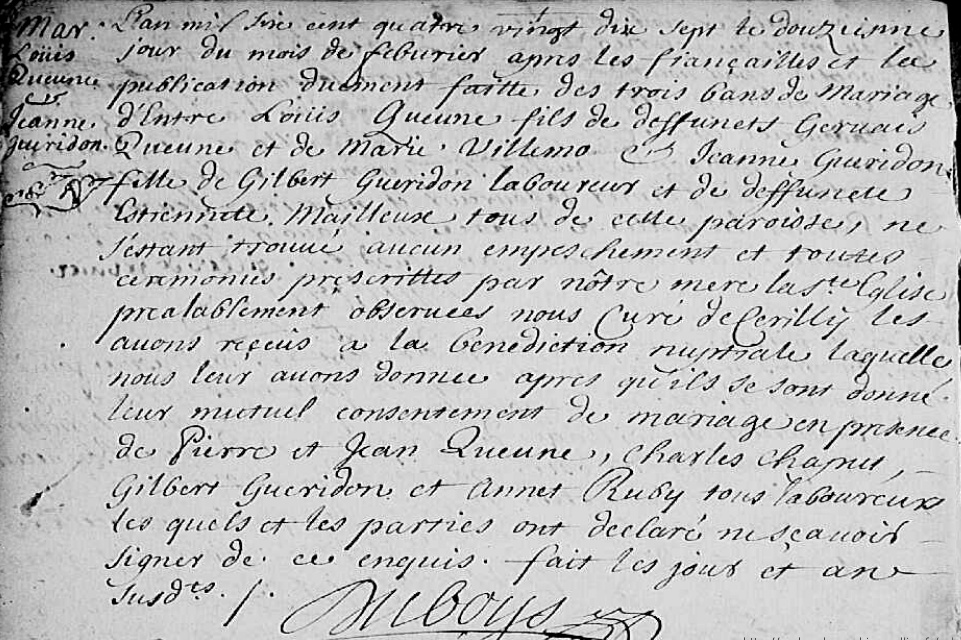 Mar.
Loüis
Queune
Jeanne
gueridon.
L'an mil six cent quatre vingt dix sept le douzienne
jour du mois de feburier apres les fiançailles et les
publication duement faitte des trois bans de Mariage
d'Entre Loüis Queune fils de deffunets Gervais
Queune et de Marie Villemo & Jeanne Gueridon
fille de Gilbert Gueridon laboureur et de deffuncte
Estiennete Mailleux tous de cette paroisse, ne
s'estant trouué aucun empeschement et toutes
ceremonies prescrittes par nôtre mere la Ste Eglise
prealablement obseruées nous Curé de Cerilly les
auons reçeus a la benediction nuptiale laquelle
nous leur auons donnee apres qu'ils se sont donné
leur mutuel consentement de mariage en presence
de Pierre et Jean Queune, Charles Chaput,
Gilbert Gueridon et Annet Ruby tous laboureurs
les quels et les parties ont declaré ne sçauoir
signer de ce enquis. fait les jour et an
susdts. /.
Duboys